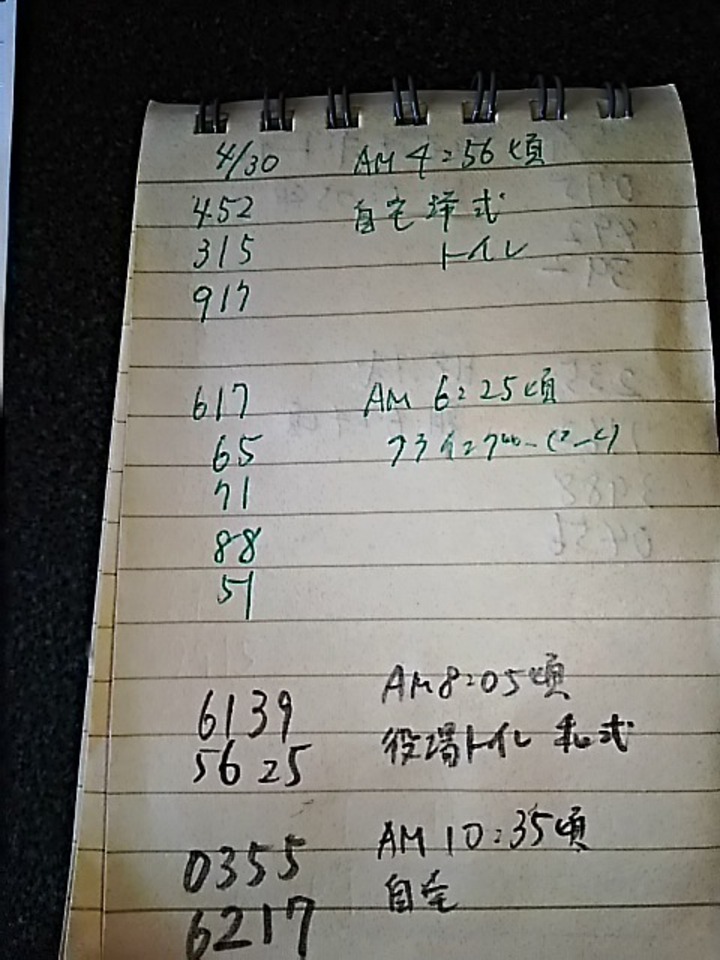 4/30 AM 4:56頃
452 自宅 洋式
315 トイレ
917
617 AM 6:25頃
65
71
88
51
6139 AM 8:05頃
5625 役場トイレ 私式
0355 AM 10:35頃
6217 自宅